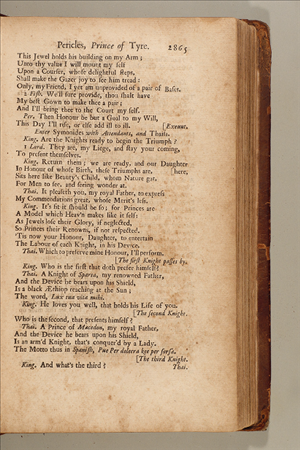 Pericles, Prince of Tyre. 2865
This Jewel holds his building on my Arm;
Unto thy value I will mount my self
Upon a Courser, whose delightful steps,
Shall make the Gazer joy to see him tread:
Only, my Friend, I yet am unprovided of a pair of Bases.
2 Fish. We'll sure provide, thou shalt have
My best Gown to make thee a pair;
And I'll bring thee to the Court my self.
Per. Then Honour be but a Goal to my Will,
This Day I'll rise, or else add ill to ill. [Exeunt.
Enter Symonides with Attendants, and Thaisa.
King. Are the Knights ready to begin the Triumph?
1 Lord. They are, my Liege, and stay your coming,
To present themselves.
King. Return them; we are ready, and our Daughter
In Honour of whose Birth, these Triumphs are, [here,
Sits here like Beauty's Child, whom Nature gat,
For Men to see, and seeing wonder at.
Thai. It pleaseth you, my royal Father, to express
My Commendations great, whose Merit's less.
King. It's fit it should be so; for Princes are
A Model which Heav'n makes like it self:
As Jewels lose their Glory, if neglected,
So Princes their Renowns, if not respected.
'Tis now your Honour, Daughter, to entertain
The Labour of each Knight, in his Device.
Thai. Which to preserve mine Honour, I'll perform.
[The first Knight passes by.
King. Who is the first that doth prefer himself?
Thai. A Knight of Sparta, my renowned Father,
And the Device he bears upon his Shield,
Is a black Æthiop reaching at the Sun;
The word, Lux tua vita mihi.
King. He loves you well, that holds his Life of you.
[The second Knight.
Who is the second, that presents himself?
Thai. A Prince of Macedon, my royal Father,
And the Device he bears upon his Shield,
Is an arm'd Knight, that's conquer'd by a Lady.
The Motto thus in Spanish, Pue Per dolcera kee per forsa.
[The third Knight.
King. And what's the third? Thai.